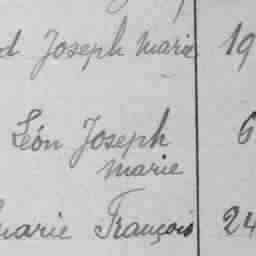 d Joseph Marie 19
Léon Joseph 6
Marie
Marie François 24